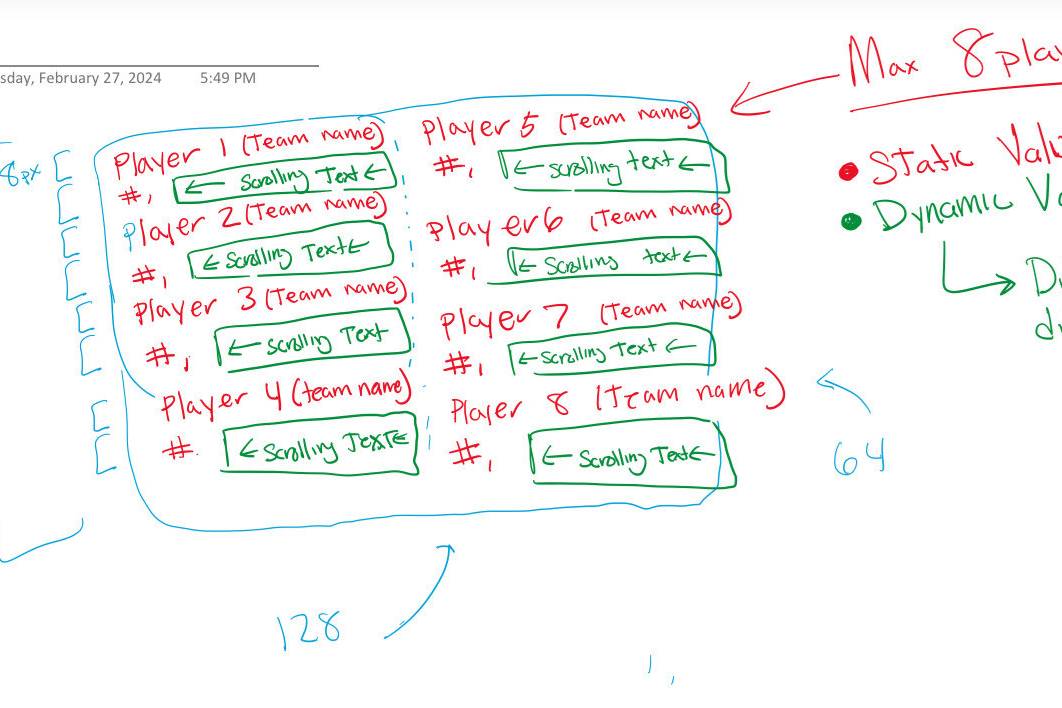 sday, February 27, 2024 5:49 PM
Max 8 play
8px
Player 1 (Team name)
#, ← Scrolling Text ←
Player 2 (Team name)
#, ← Scrolling Text ←
Player 3 (Team name)
#, ← Scrolling Text
Player 4 (team name)
#. ← Scrolling Text ←
Player 5 (Team name)
#, ← Scrolling text ←
Player 6 (Team name)
#, ← Scrolling text ←
Player 7 (Team name)
#, ← Scrolling Text ←
Player 8 (Team name)
#, ← Scrolling Text ←
• Static Val
• Dynamic Va
D
d
64
128